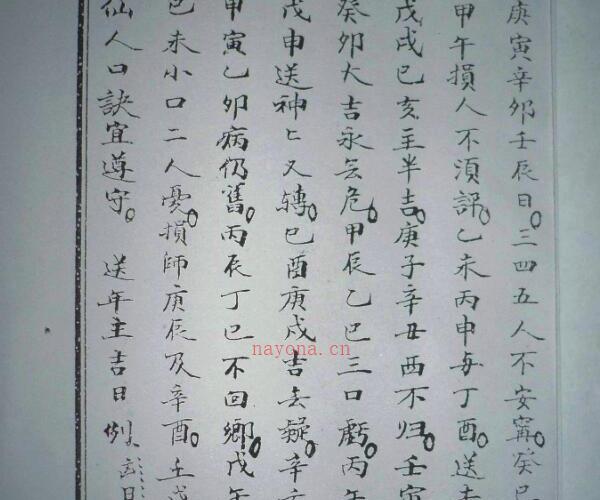 庚寅辛卯壬辰日。三四五人不安寗。癸巳
甲午損人不須評。乙未丙申每丁酉。送
戊戌巳亥主半吉。庚子辛丑西不归。壬寅
癸卯大吉永无危。甲辰乙巳三口虧。丙午
戊申送神〻又轉。巳酉庚戌吉无疑。辛
甲寅乙卯病仍舊。丙辰丁巳不回鄉。戊午
巳未小口二人憂。損師庚辰及辛酉。壬戌
仙人口訣宜遵守。 送年主吉日例
nayona.cn